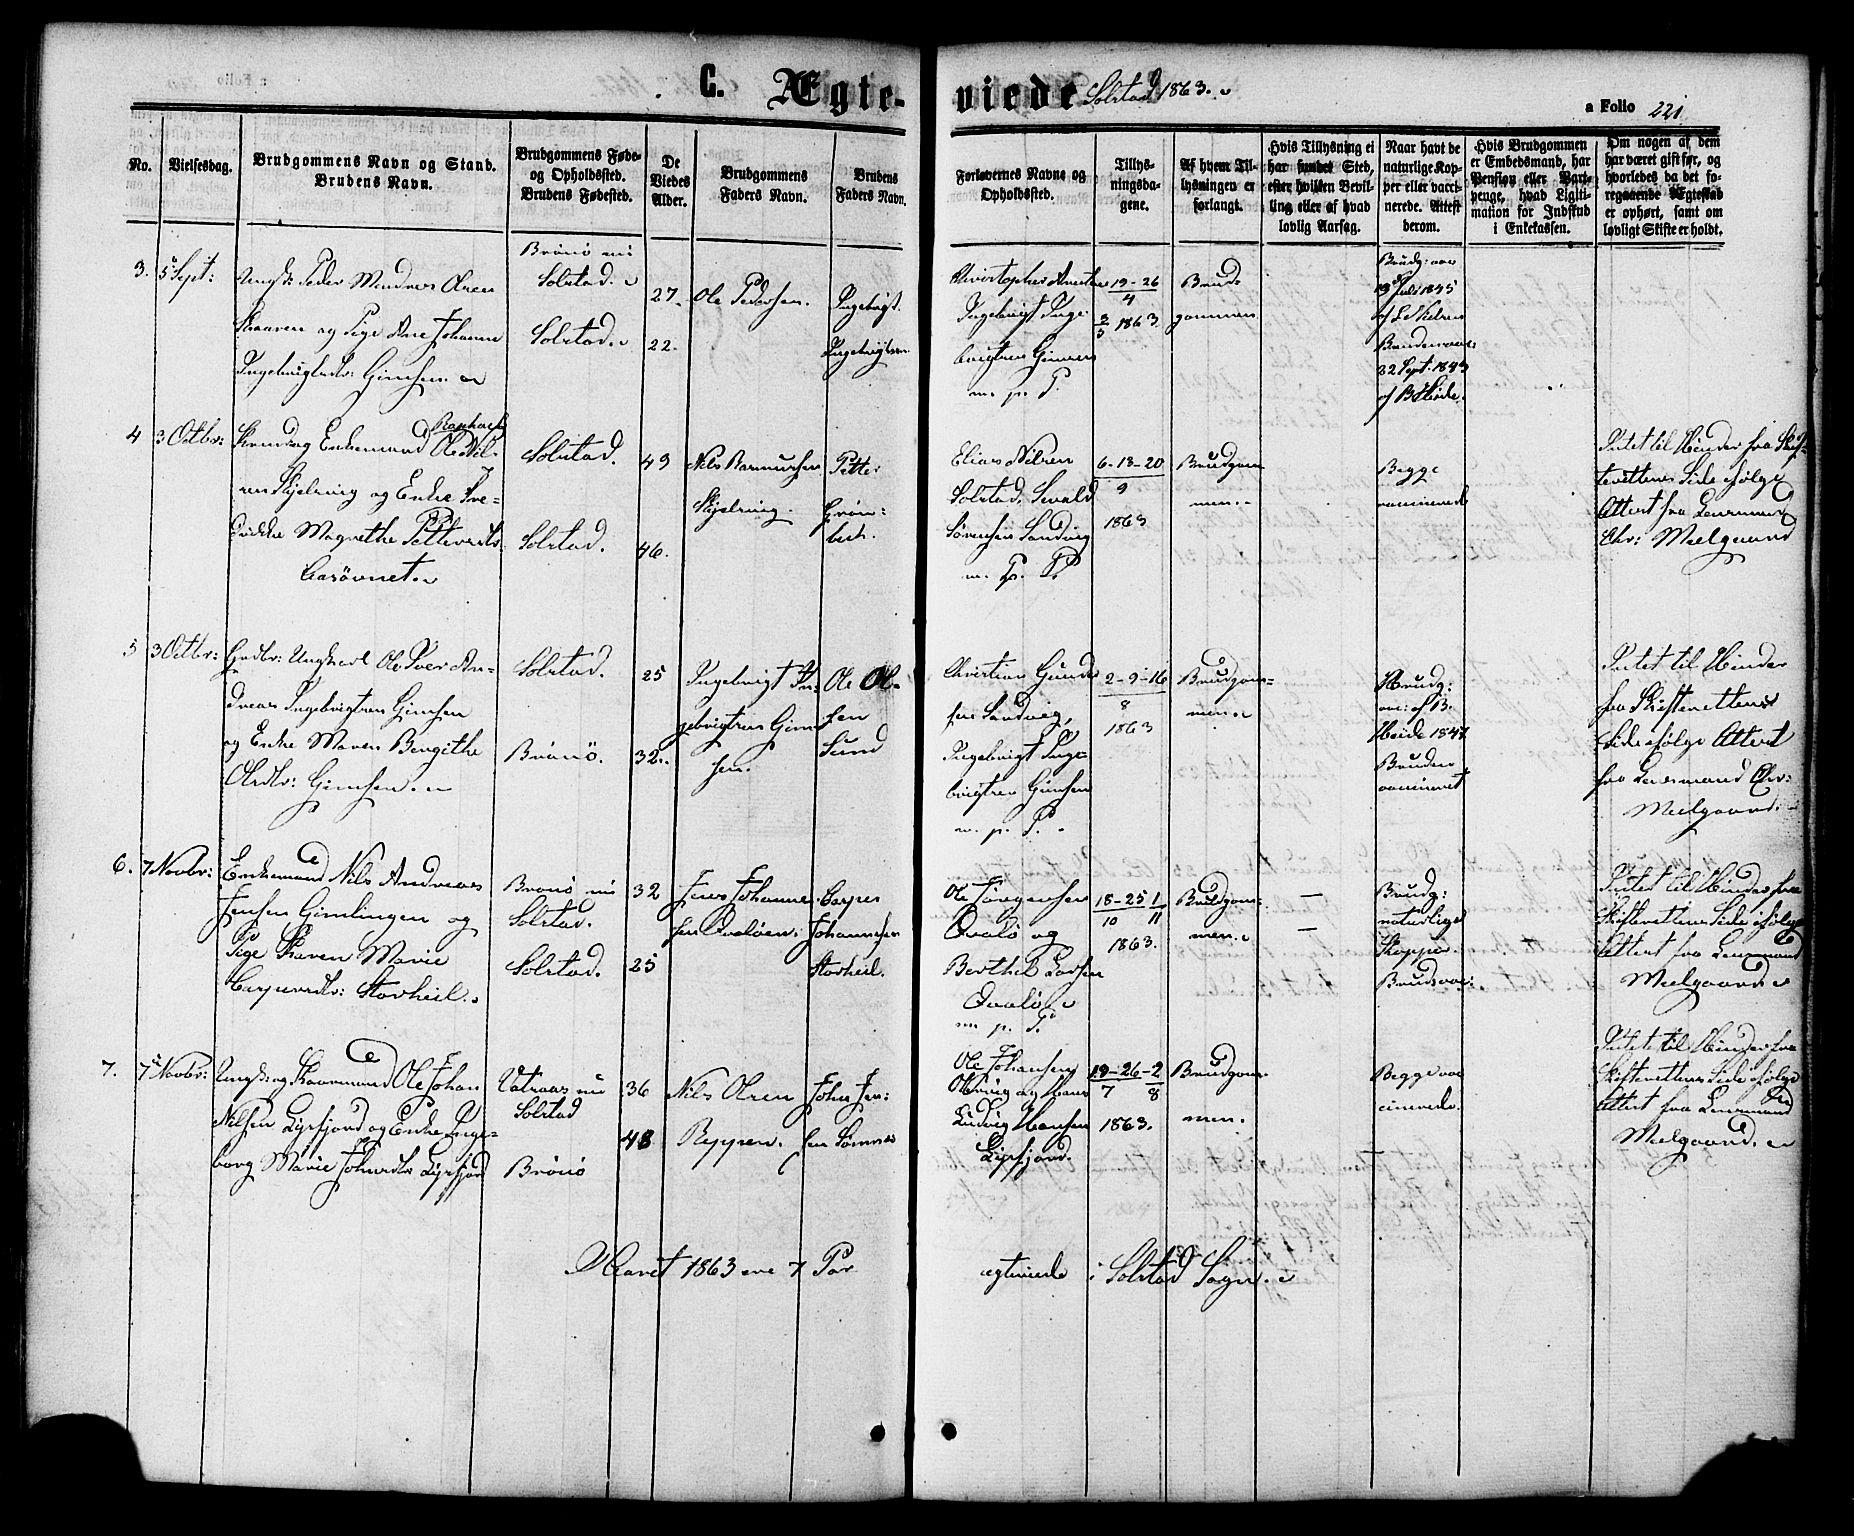 C. Ægte-
viede Solstad 1863.
a Folio 221
No.
Vielsesdag.
Brudgommens Navn og Stand.
Brudens Navn.
Brudgommens Føde-
og Opholdssted.
Brudens Fødested.
De
Viedes
Alder.
Brudgommens
Faders Navn.
Brudens
Faders Navn.
Forlovernes Navne og
Opholdssted.
Tillys-
ningsda-
gene.
Af hvem Til-
lysningen er
forlangt.
Hvis Tillysning ei
har fundet Sted,
efter hvilken Bevil-
ling eller af hvad
lovlig Aarsag.
Naar havt de
naturlige Kop-
per eller vacci-
nerede. Attest
derom.
Hvis Brudgommen
er Embedsmand, har
Pension eller Vart-
penge, hvad Ligiti-
mation for Indskud
i Enkekassen.
Om nogen af dem
har været gift før, og
hvorledes da det fo-
regaaende Ægteskab
er ophørt, samt om
lovligt Skifte er holdt.
3.
5 Sept:
Ungk: Peder Olsen
og Pige Ane Johanne
Ingebrigtsdtr: Gimsen
Brönö nu
Solstad.
Solstad.
27.
22.
Ole Pedersen.
Ingebrigt
Ingebrigtsen
Christopher
Ingebrigt Inge-
brigtsen Gimsen
m. p. P.
19-26
4
3
5 1863.
Brud-
gommen
Brudg: vac
19 Juli 1845
af
Bruden vac:
22 Sept. 1843
af B Heide.
4
3 Octbr:
Enkemand Ole Nil-
sen Skjelving og Enke
Magrethe Pettersdtr
Solstad.
Solstad.
43
46.
Nils Rasmussen
Skjelving.
Petter
Grön-
bech.
Elias Nilsen
Solstad, Sivald
Sörensen Sandvig
m. p. P.
6-13-20
9
1863
Brudgom-
men.
Begge
vaccinerede
Intet til Hinder fra Skif-
terettens Side ifølge
Attest fra Lensmand
Chr: Meelgaard
5
3 Octbr:
Ungkarl Ole Iver An-
dreas Ingebrigtsen Gimsen
og Enke Maren Bergithe
Olsdtr: Gimsen.
Solstad.
Brönö.
25
32.
Ingebrigt In-
gebrigtsen Gim-
sen.
Ole Ol-
sen
Sund
Christian Gunder-
sen Sandvig,
Ingebrigt Inge-
brigtsen Gimsen
m. p. P.
2-9-16
8
1863
Brudgom-
men.
Brudg:
vac: af B.
Heide 1847
Bruden
vaccineret
Intet til Hinder
fra Skifterettens
Side ifølge Attest
fra Lensmand Chr:
Meelgaard.
6.
7 Novbr:
Enkemand Nils Andreas
Jensen Gimlingen og
Pige Karen Marie
Caspersdtr: Storheil.
Brönö nu
Solstad.
Solstad.
32
25
Jens Johanne-
sen Qvalöen.
Casper
Johannesen
Storheil.
Ole Jörgensen
Qvalö og
Berthel Larsen
Qvalö
m. p. P.
18-25 1
10 11
1863.
Brudgom-
men.
—
—
Brudg:
naturlige
Kopper.
Brud vac:
Intet til Hinder fra
Skifterettens Side ifølge
Attest fra Lensmand
Meelgaard
7.
7 Novbr:
Ungk: og Ole Johan
Nilsen Lysfjord og Enke Inge-
borg Marie Johnsdtr: Lysfjord
nu
Solstad
Brönö
36
48
Nils Olsen
Reppen.
John Jen-
sen Sömnes
Ole Johansen
og Hans
Ludvig Hansen
Lysfjord.
19-26-2
7 8
1863.
Brudgom-
men.
Begge vac-
cinerede.
Intet til Hinder fra
Skifterettens Side ifølge
Attest fra Lensmand
Meelgaard.
I Aaret 1863 ere 7 Par
ægteviede i Solstad Sogn.